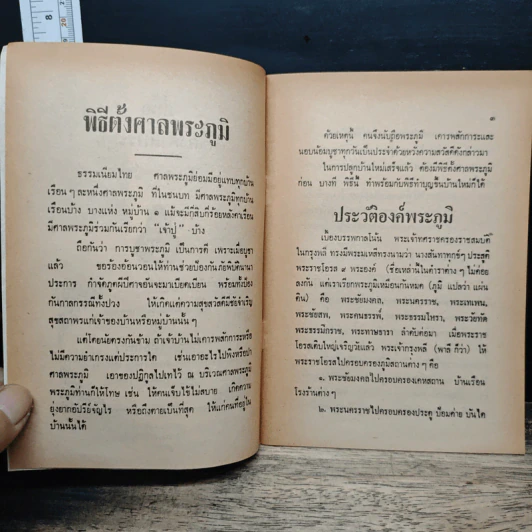 พิธีตั้งศาลพระภูมิ
ธรรมเนียมไทย ศาลพระภูมิย่อมมีอยู่แทบทุกบ้าน
เรือน ๆ ละหนึ่งศาลพระภูมิ ที่ในชนบท มีศาลพระภูมิทุกบ้าน
เรือนบ้าง บางแห่ง หมู่บ้าน ๑ แม้จะมีกี่สิบกี่ร้อยหลังคาเรือน
มีศาลพระภูมิร่วมกันเรียกว่า “เจ้าปู่” บ้าง
ถือกันว่า การบูชาพระภูมิ เป็นการดี เพราะเมื่อบูชา
แล้ว ขอร้องอ้อนวอนให้ท่านช่วยป้องกันภัยพิบัตินานา
ประการ กำจัดภูตผีปีศาจอันจะมาเบียดเบียน พร้อมทั้งป้อง
กันกาลกรรณีทั้งปวง ให้เกิดแต่ความสุขสวัสดิ์มีชัยจำเริญ
สุขสถาพรแก่เจ้าของบ้านหรือหมู่บ้านนั้น ๆ
แต่โดยนัยตรงกันข้าม ถ้าเจ้าบ้านไม่เคารพสักการะหรือ
ไม่มีความยำเกรงแต่ประการใด เช่นเอาอะไรไปพิงหรือปา
ศาลพระภูมิ เอาของปฏิกูลไปเทไว้ ณ บริเวณศาลพระภูมิ
พระภูมิท่านก็ให้โทษ เช่น ให้คนเจ็บไข้ไม่สบาย เกิดความ
ยุ่งยากอัปรีย์จัญไร หรือถึงตายเป็นที่สุด ให้แก่คนที่อยู่ใน
บ้านนั้นได้
๑
ด้วยเหตุนี้ คนจึงนับถือพระภูมิ เคารพสักการะและ
นอบน้อมบูชาทุกวันเป็นประจำด้วยหวังความสวัสดีดังกล่าวมา
ในการปลูกบ้านใหม่เสร็จแล้ว ต้องมีพิธีตั้งศาลพระภูมิ
ก่อน บางที พิธีนี้ ทำพร้อมกับพิธีทำบุญขึ้นบ้านใหม่ก็ได้
ประวัติองค์พระภูมิ
เบื้องบรรพกาลโน้น พระเจ้าทศราชครองราชสมบัติ
ในกรุงพลี ทรงมีพระมเหสีทรงนามว่า นางสันทาทุกข์ฯ ประสูติ
พระราชโอรส ๙ พระองค์ (ชื่อเหล่านี้ในตำราต่าง ๆ ไม่ค่อย
ลงกัน แต่เราเรียกพระภูมิเหมือนกันหมด (ภูมิ แปลว่า แผ่น
ดิน) คือ พระชัยมงคล, พระนครราช, พระเทเพน,
พระชัยสพ, พระคนธรรพ์, พระธรรมโหรา, พระวัยทัต
พระธรรมิกราช, พระทาษธารา ลำดับต่อมา เมื่อพระราช
โอรสเติบใหญ่เจริญวัยแล้ว พระเจ้ากรุงพลี (พาลี ก็ว่า) ให้
พระราชโอรสไปครอบครองภูมิสถานต่าง ๆ คือ
๑. พระชัยมงคลไปครอบครองเคหสถาน บ้านเรือน
โรงร้านต่าง ๆ
๒. พระนครราชไปครอบครองประตู ป้อมค่าย บันได